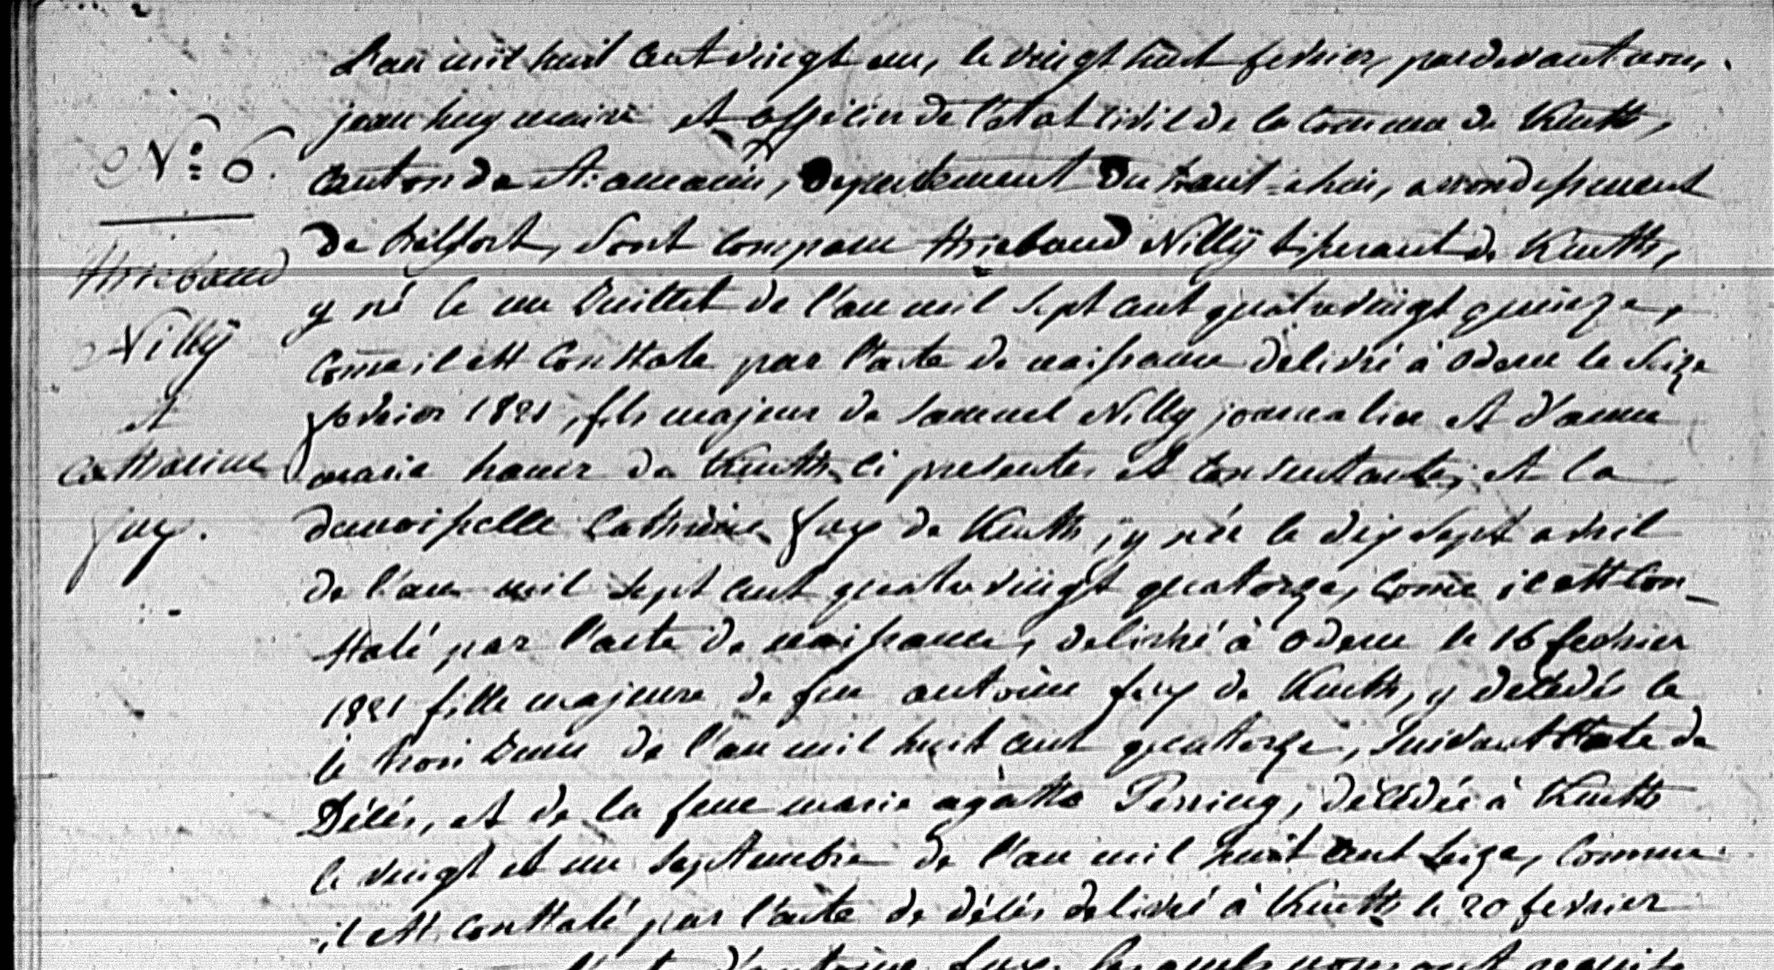 N.º 6.
thiebaud
Nilly
et
Catharine
fux.
L'an mil huit cent vingt un, le vingt huit fevrier, pardevant nous,
jean hug maire et officier de l'état civil de la Comune de Kruth,
canton de St. amarin, Departement Du haut-rhin, arrondissement
de belfort, sont comparu thiebaud Nilly tisserant de Kruth,
y né le un Juillet de l'an mil sept cent quatrevingt quinze,
Come il est constaté par l'acte de naissance delivré à oderen le seize
fevrier 1821, fils majeur de samuel Nilly journalier et d'anne
marie de Kruth ci presentes et consentantes, et la
demoiselle Cathrine fux de Kruth, y née le dix sept avril
de l'an mil sept cent quatrevingt quatorze, come il est con-
staté par l'acte de naissance, delivré à oderen le 16 fevrier
1821 fille majeure de feu antoine fux de Kruth, y décédés le
le trois de l'an mil huit cent quatorze, suivant l'acte de
Décés, et de la feue marie agathe Perring, décédée à Kruth
le vingt et un septembre de l'an mil huit cent seize, comme
il est constaté par l'acte de décés delivré à Kruth le 20 fevrier
d'antoine fux, lesquels nous ont requis